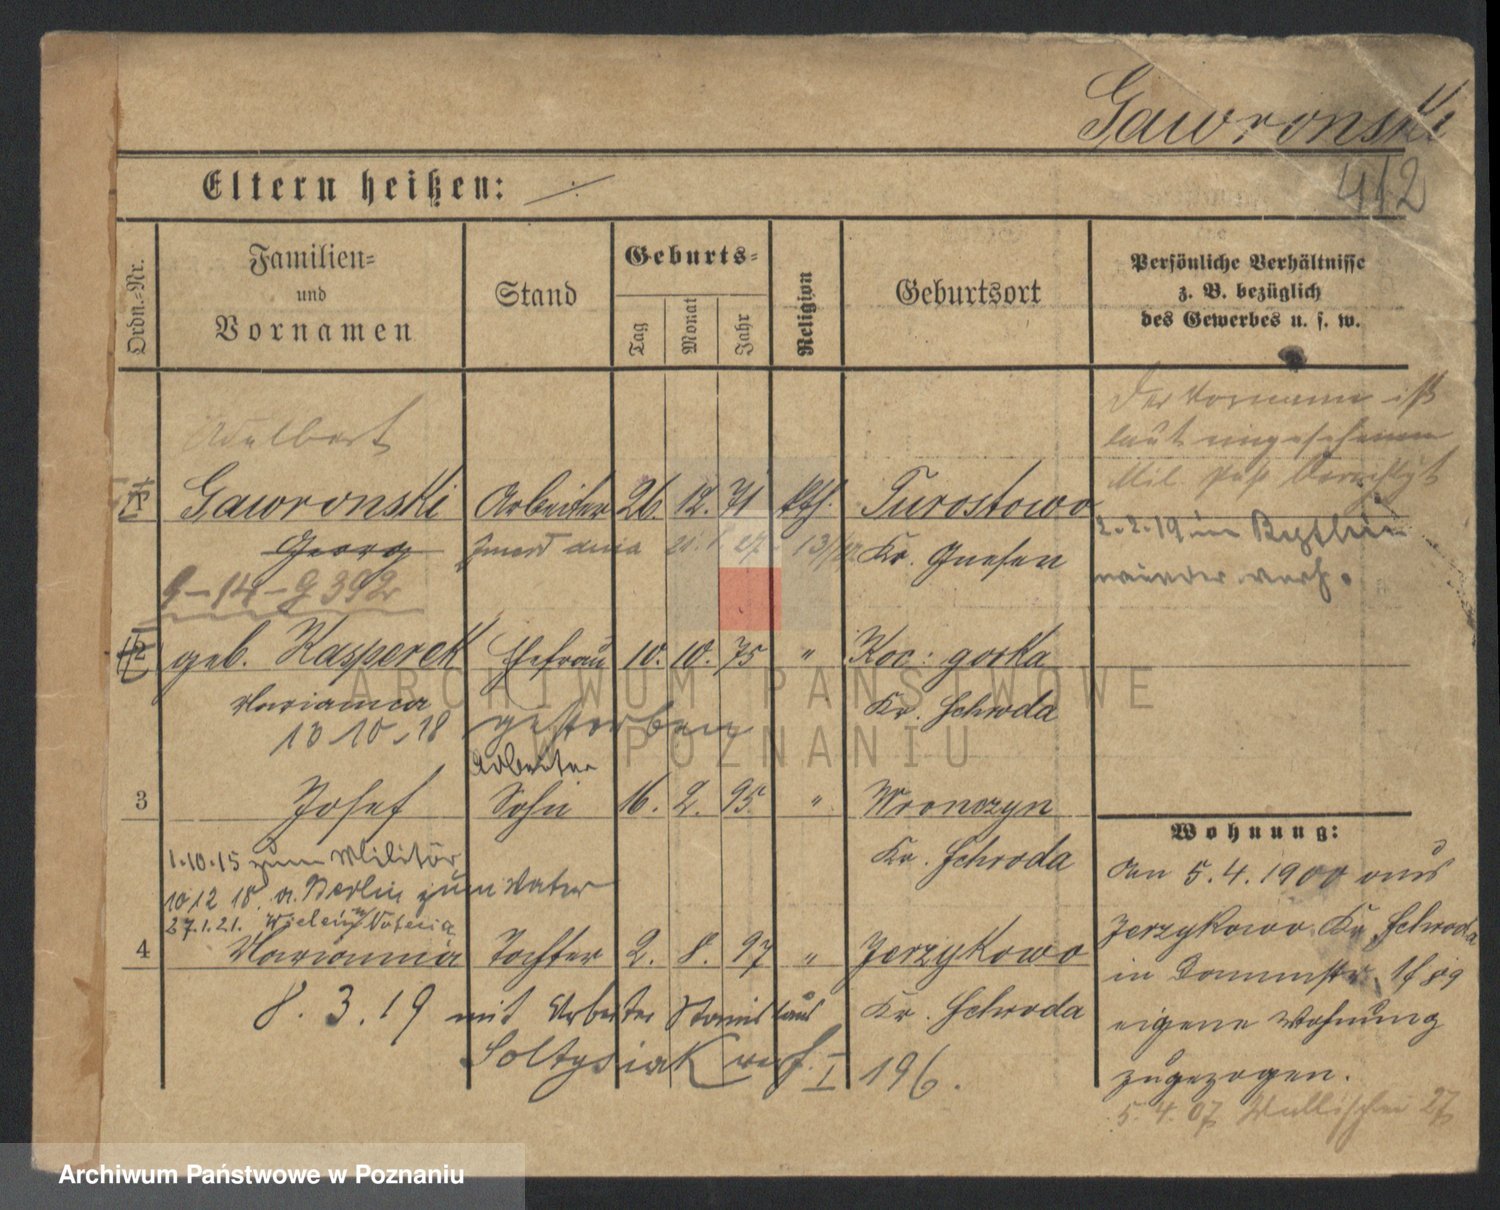 Gawronski
412
Eltern heißen: ./.
Ordn.-Nr.
Familien-
und
Vornamen
Stand
Geburts-
Tag
Monat
Jahr
Religion
Geburtsort
Persönliche Verhältnisse
z. B. bezüglich
des Gewerbes u. s. w.
Adelbert
Der Vorname ist
laut eingesehenem
Mil. Paß berichtigt
1 Gawronski Arbeiter 26. 12. 71 kth. Turostowo
Georg
Kr. Gnesen
2.2.19 in
wieder verh.
9-14-G 392
2 geb. Kasperek Ehefrau 10. 10. 75 " Koc: gorka
Marianna
Kr. Schroda
13 10.18 gestorben
Arbeiter
3 Josef Sohn 16. 2. 95. " Wronczyn
Kr. Schroda
1.10.15 zum Militär
10 12 18. v. Berlin zum Vater
27.1.21.
4 Marianna Tochter 2. 8. 97 " Jerzykowo
Kr. Schroda
8.3.19 mit Arbeiter Stanislaus
Soltysiak verh. I 196.
Wohnung:
Den 5.4.1900 aus
Jerzykowo Kr. Schroda
in
eigene Wohnung
zugezogen.
5.4.07 Wallischei 27
ARCHIWUM PAŃSTWOWE
W POZNANIU
Archiwum Państwowe w Poznaniu